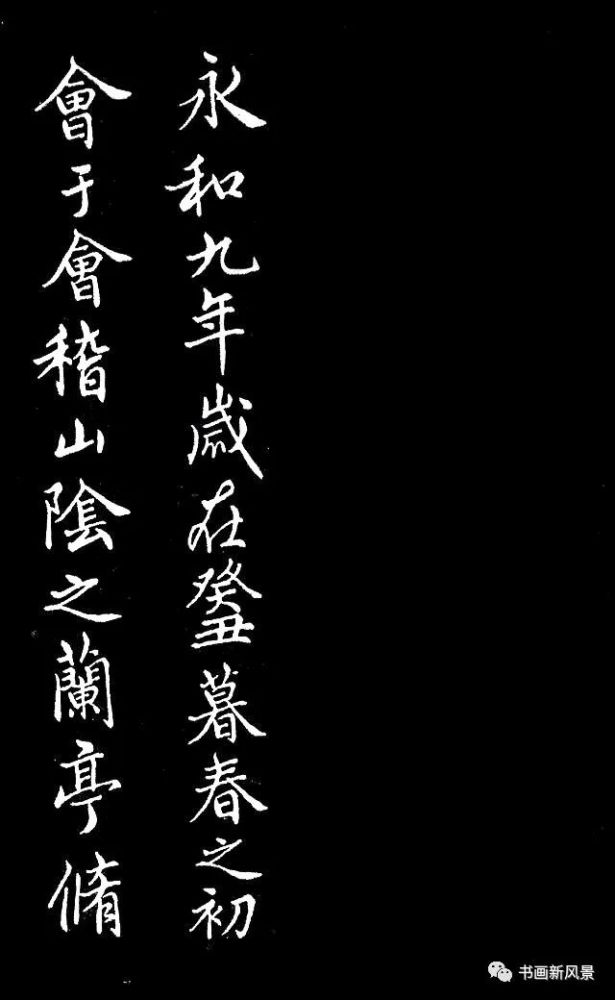 永和九年歲在癸丑暮春之初
會于會稽山陰之蘭亭脩
书画新风景